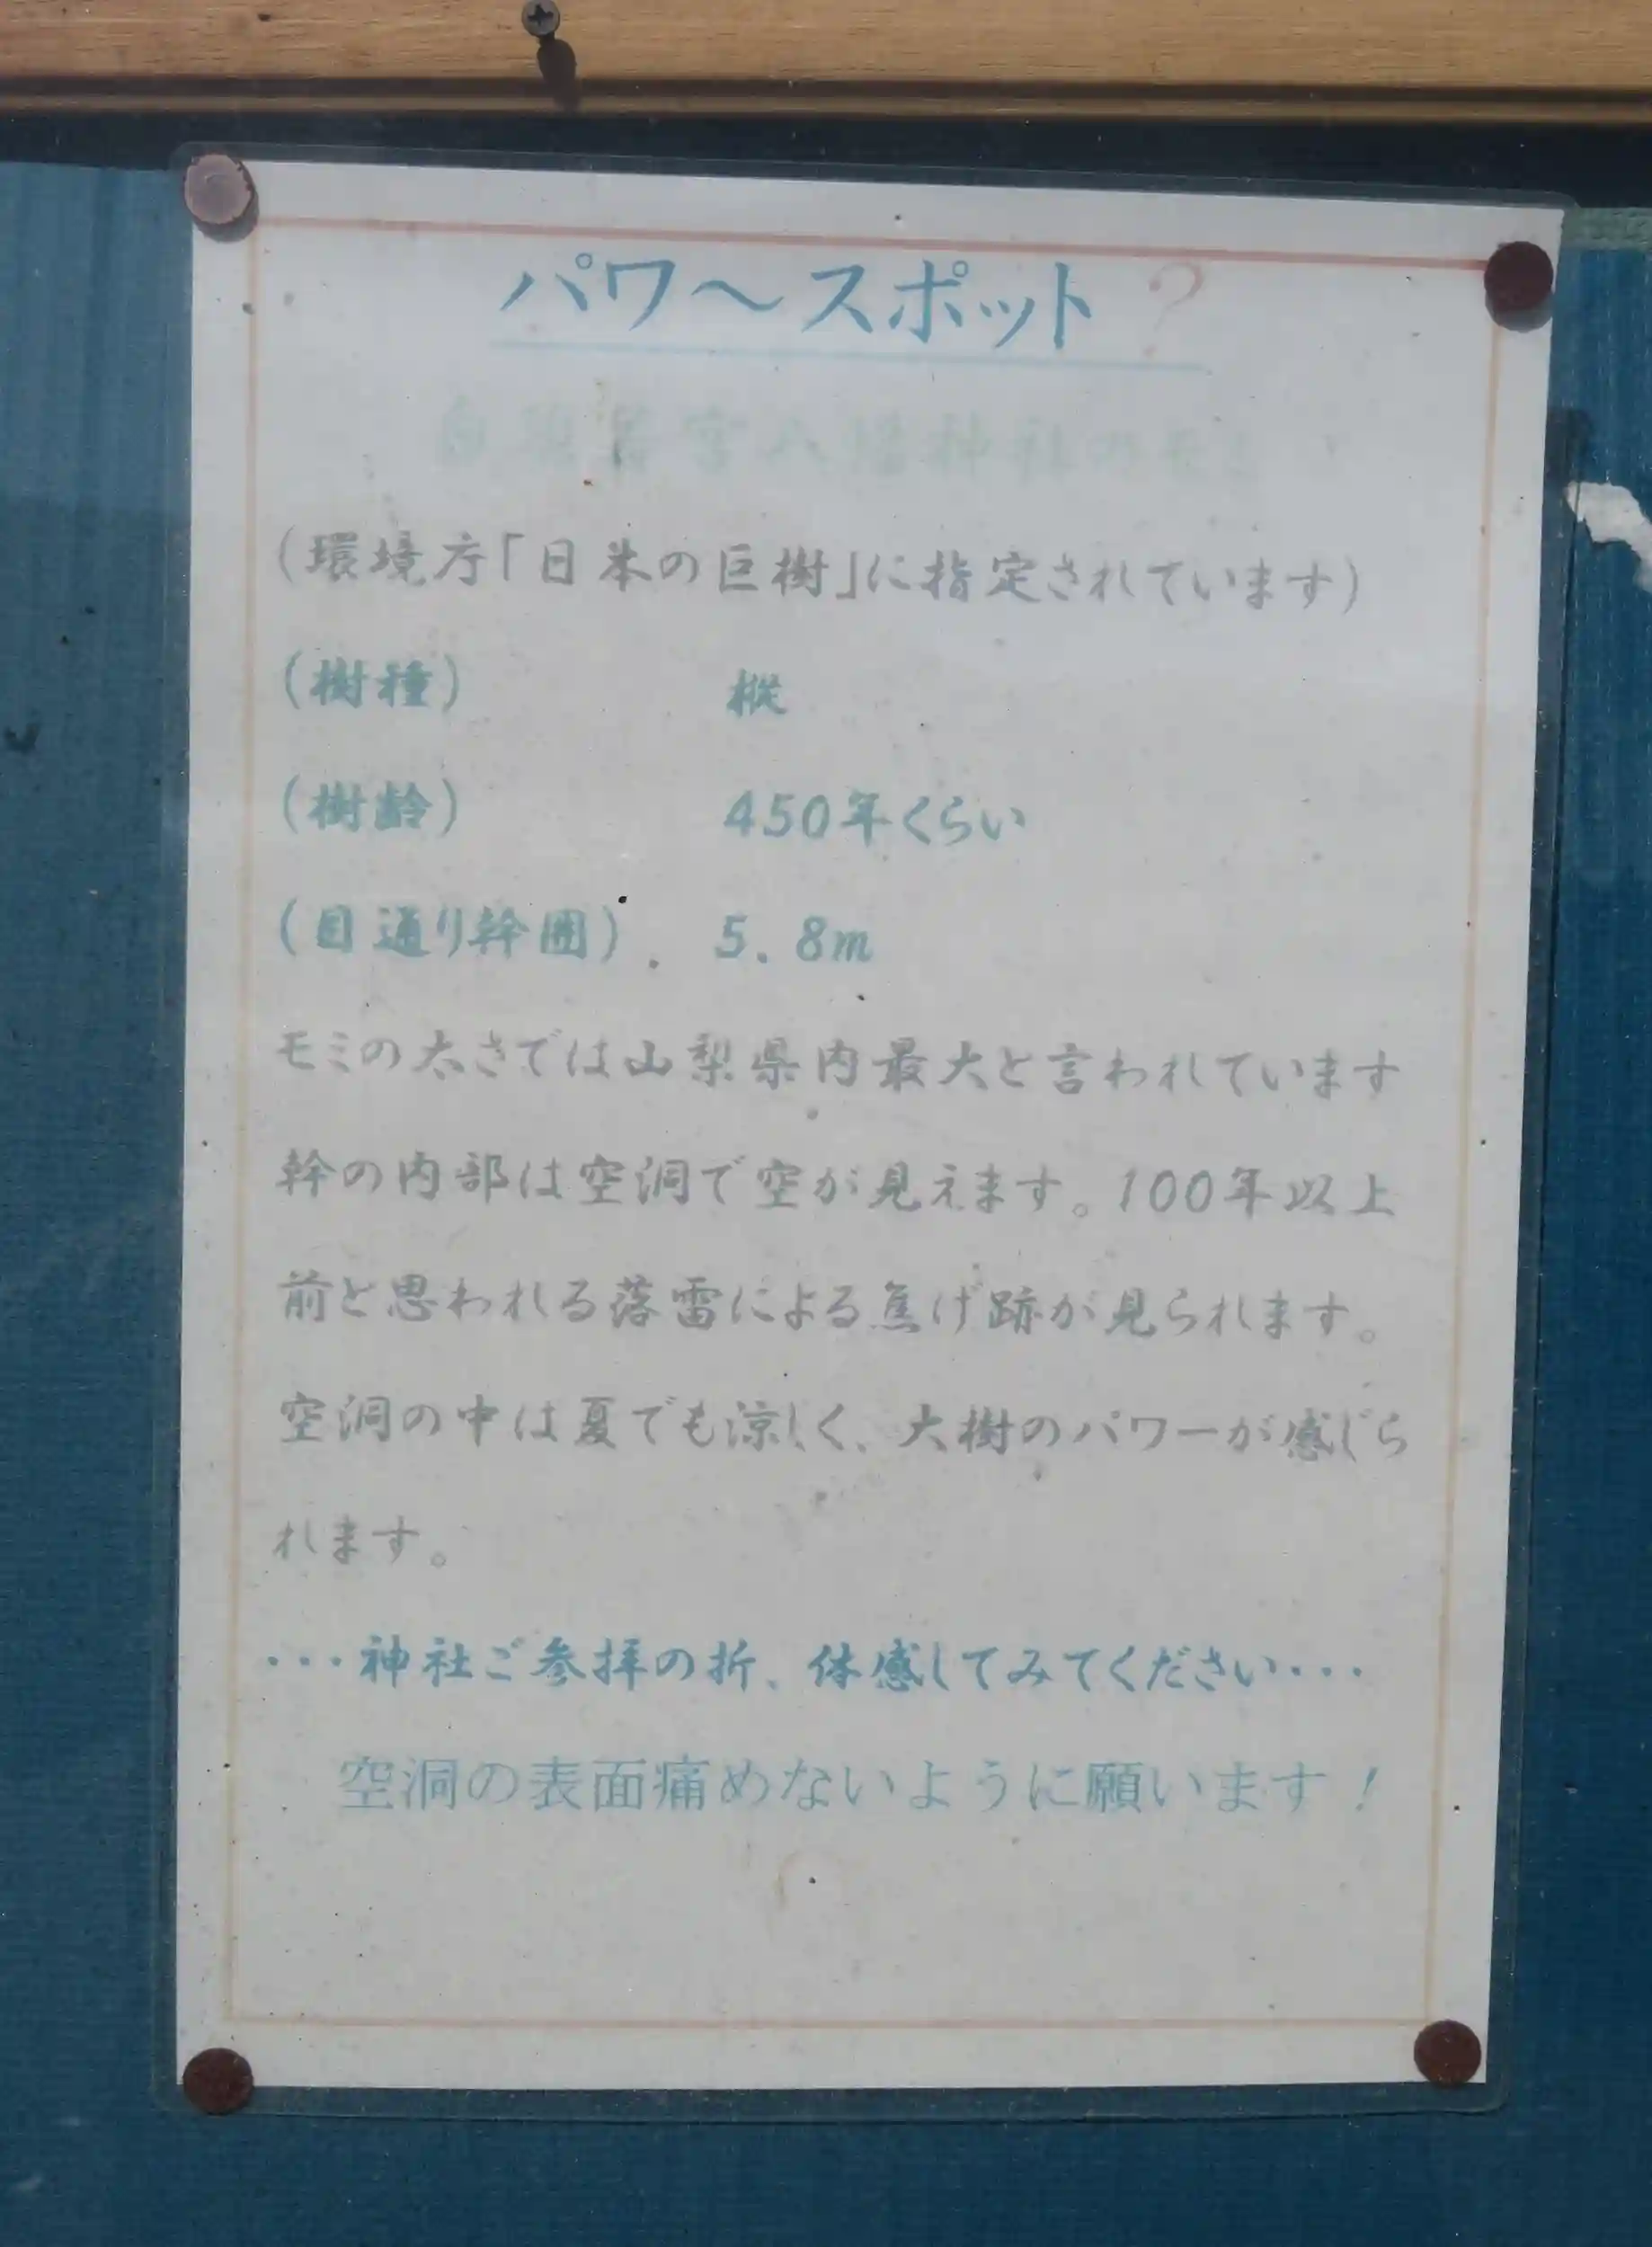 パワ～スポット？
若宮八幡神社のモミ
（環境庁「日本の巨樹」に指定されています）
（樹種） 樅
（樹齢） 450年くらい
（目通り幹囲） 5．8m
モミの太さでは山梨県内最大と言われています
幹の内部は空洞で空が見えます。100年以上
前と思われる落雷による焦げ跡が見られます。
空洞の中は夏でも涼しく、大樹のパワーが感じら
れます。
・・・神社ご参拝の折、体感してみてください・・・
空洞の表面痛めないように願います！